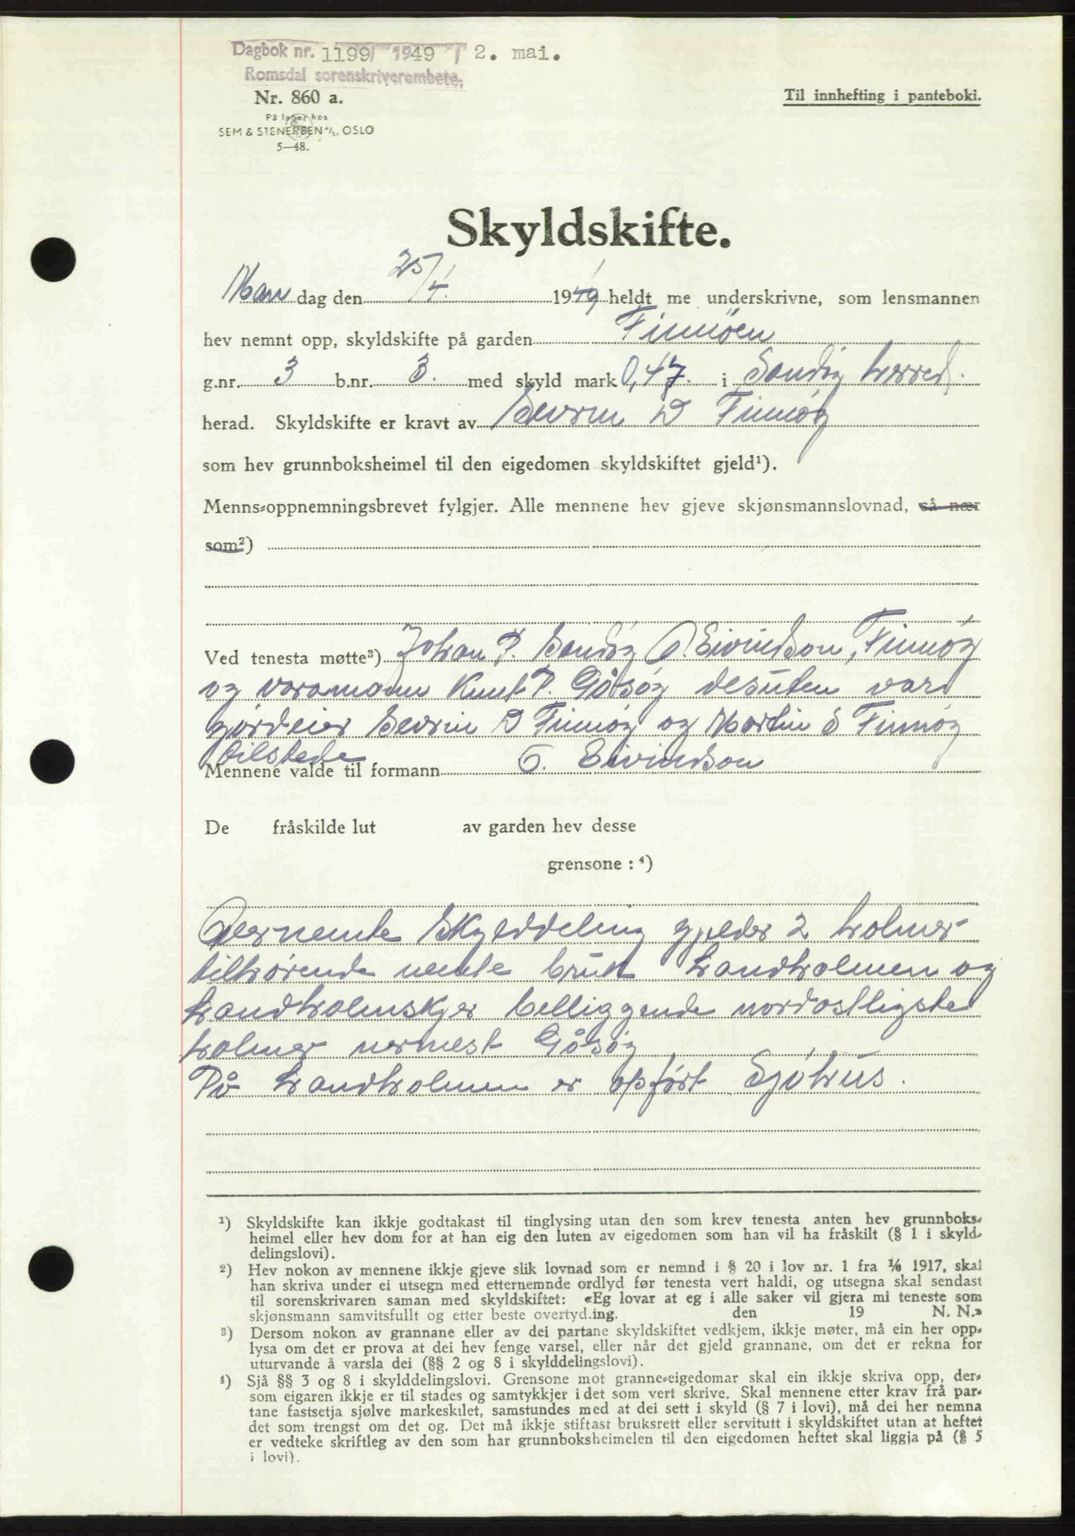 Dagbok nr. 1199 / 1949 2. mai.
Romsdal sorenskriverembete.
Nr. 860 a.
Til innhefting i panteboki.
På lager hos
SEM & STENERSEN A/S, OSLO
5—48.
Skyldskifte.
Man dag den 25/4. 1949 heldt me underskrivne, som lensmannen
hev nemnt opp, skyldskifte på garden Finnøen
g.nr. 3 b.nr. 3. med skyld mark 0,47. i Sandøy herred.
herad. Skyldskifte er kravt av Severin D Finnøy
som hev grunnboksheimel til den eigedomen skyldskiftet gjeld¹).
Menns-oppnemningsbrevet fylgjer. Alle mennene hev gjeve skjønsmannslovnad, så nær
som²)
Ved tenesta møtte³) Johan P. Sandøy O. Eivindson, Finnøy
og varamann Knut P. Gåsøy desuten var
gårdeier Severin D Finnøy og Martin S Finnøy
tilstede
Mennene valde til formann O. Eivindson
De fråskilde lut av garden hev desse
grensone : ⁴)
Overnemte Skylddeling gjelder 2 holmer
tilhørende nemte bruk Landholmen og
Landholmskjer belliggende nordostligste
holmer nermest Gåsøy
På Landholmen er opført Sjøhus.
¹) Skyldskifte kan ikkje godtakast til tinglysing utan den som krev tenesta anten hev grunnboks-
heimel eller hev dom for at han eig den luten av eigedomen som han vil ha fråskilt (§ 1 i skyld-
delingslovi).
²) Hev nokon av mennene ikkje gjeve slik lovnad som er nemnd i § 20 i lov nr. 1 fra 1/6 1917, skal
han skriva under ei utsegn med etternemnde ordlyd før tenesta vert haldi, og utsegna skal sendast
til sorenskrivaren saman med skyldskiftet: «Eg lovar at eg i alle saker vil gjera mi teneste som
skjønsmann samvitsfullt og etter beste overtyding. den 19 N. N.»
³) Dersom nokon av grannane eller av dei partane skyldskiftet vedkjem, ikkje møter, må ein her opp-
lysa om det er prova at dei hev fenge varsel, eller når det gjeld grannane, om det er rekna for
uturvande å varsla dei (§§ 2 og 8 i skylddelingslovi).
⁴) Sjå §§ 3 og 8 i skylddelingslovi. Grensone mot granne-eigedomar skal ein ikkje skriva opp, der-
som eigaren ikkje er til stades og samtykkjer i det som vert skrive. Skal mennene etter krav frå par-
tane fastsetja sjølve markeskilet, samstundes med at dei sett i skyld (§ 7 i lovi), må dei her nemna
det som trengst om det og. Det må ikkje stiftast bruksrett eller servitutt i skyldskiftet utan at heftet
er vedteke skriftleg av den som har grunnboksheimelen til den eigedomen heftet skal liggja på (§ 5
i lovi).